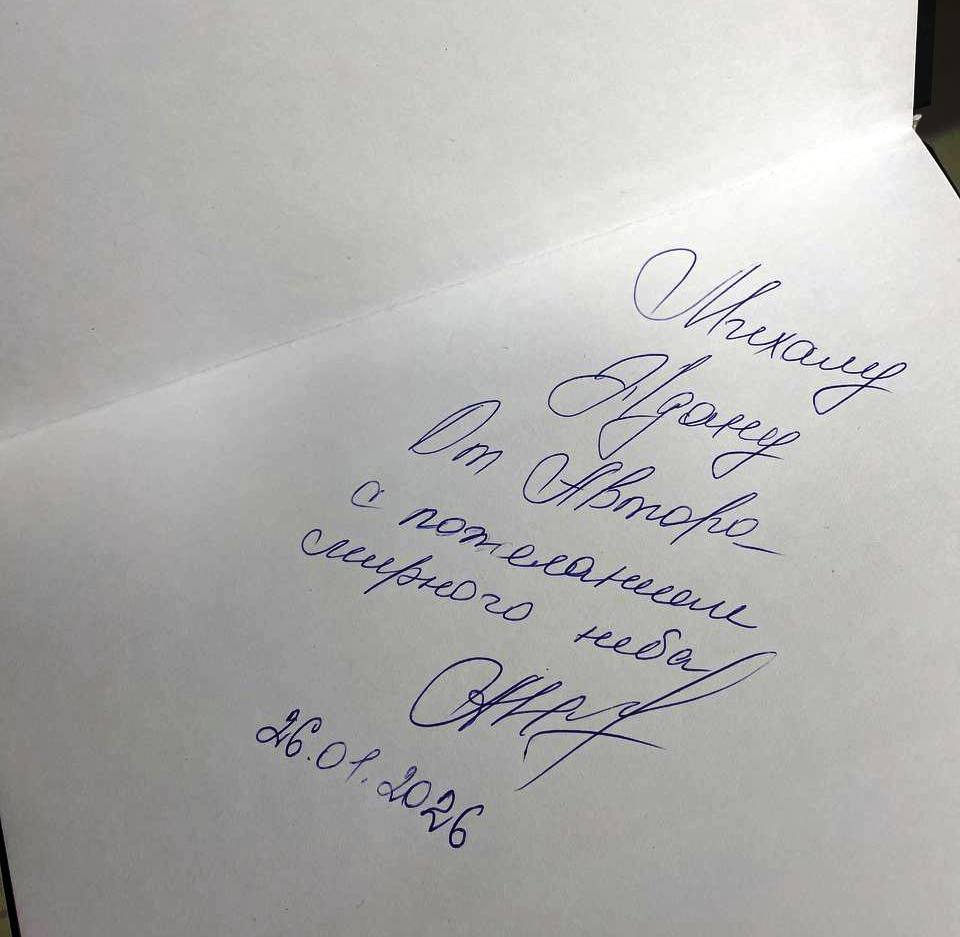 Михалу
Ждану
От Автора
с пожеланием
мирного неба
26.01.2026